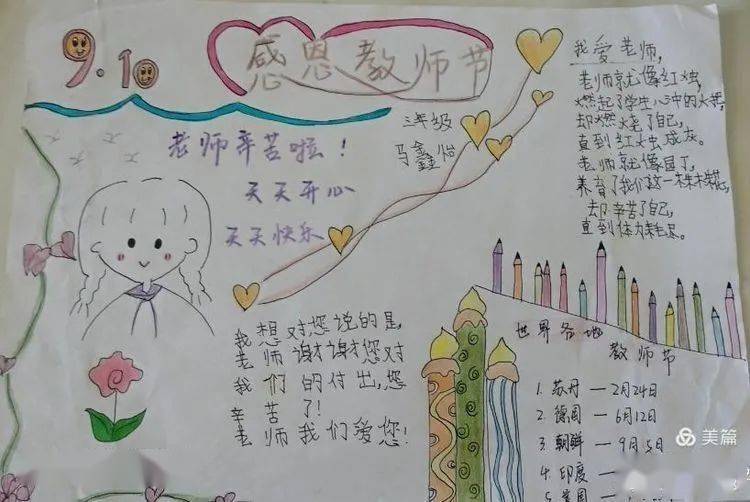 9.10
感恩教师节
三年级
马鑫怡
老师辛苦啦！
天天开心
天天快乐
我爱老师，
老师就像红烛，
燃起了学生心中的火苗，
却燃烧了自己，
直到红烛成灰。
老师就像园丁，
养育了我们这一株株
却辛苦了自己，
直到体力耗尽。
我想对您说的是，
老师谢谢谢谢您对
我们的付出，您
辛苦了！
老师我们爱您！
世界各地
教师节
1. 苏丹 — 2月24日
2. 德国 — 6月12日
3. 朝鲜 — 9月5日
4. 印度 —
5.
美篇